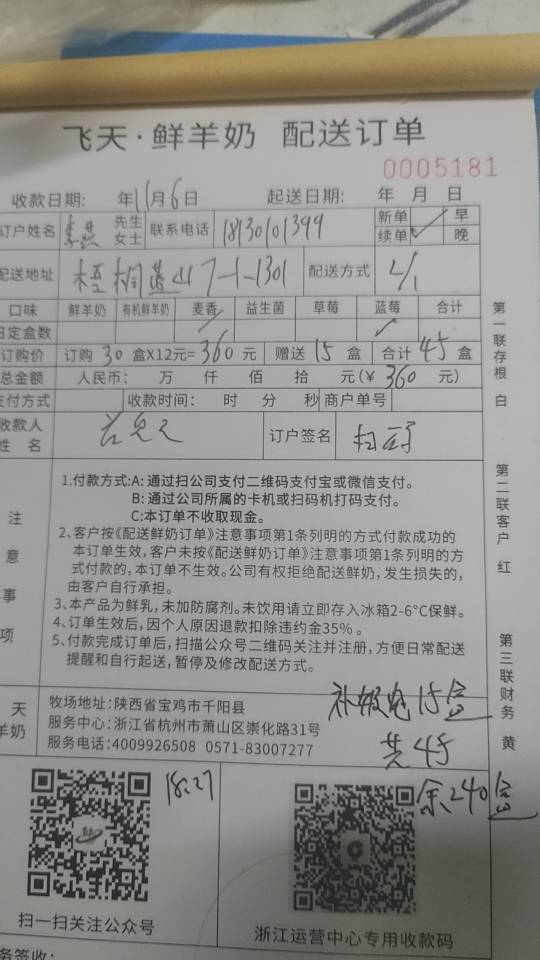 飞天·鲜羊奶 配送订单
0005181
收款日期: 年11月6日 起送日期: 年 月 日
订户姓名 先生 女士 联系电话 18130101399 新单 早 续单 晚
配送地址 梧桐蓝山7-1-1301 配送方式
口味 鲜羊奶 有机鲜羊奶 麦香 益生菌 草莓 蓝莓 合计
日定盒数 ✓
订购价 订购 30 盒X12元= 360 元 赠送 15 盒 合计 45 盒
总金额 人民币: 万 仟 佰 拾 元(¥ 360 元)
支付方式 收款时间: 时 分 秒 商户单号
收款人姓名 订户签名
注意事项
1.付款方式:A: 通过扫公司支付二维码支付宝或微信支付。
B: 通过公司所属的卡机或扫码机打码支付。
C:本订单不收取现金。
2、客户按《配送鲜奶订单》注意事项第1条列明的方式付款成功的
本订单生效，客户未按《配送鲜奶订单》注意事项第1条列明的方
式付款的，本订单不生效。公司有权拒绝配送鲜奶，发生损失的，
由客户自行承担。
3、本产品为鲜乳，未加防腐剂。未饮用请立即存入冰箱2-6°C保鲜。
4、订单生效后，因个人原因退款扣除违约金35%。
5、付款完成订单后，扫描公众号二维码关注并注册，方便日常配送
提醒和自行起送，暂停及修改配送方式。
第一联存根 白
第二联客户 红
第三联财务 黄
天
羊奶
牧场地址: 陕西省宝鸡市千阳县
服务中心: 浙江省杭州市萧山区崇化路31号
服务电话: 4009926508 0571-83007277
15盒
共45
余240盒
18:27
扫一扫关注公众号
浙江运营中心专用收款码
务签收: